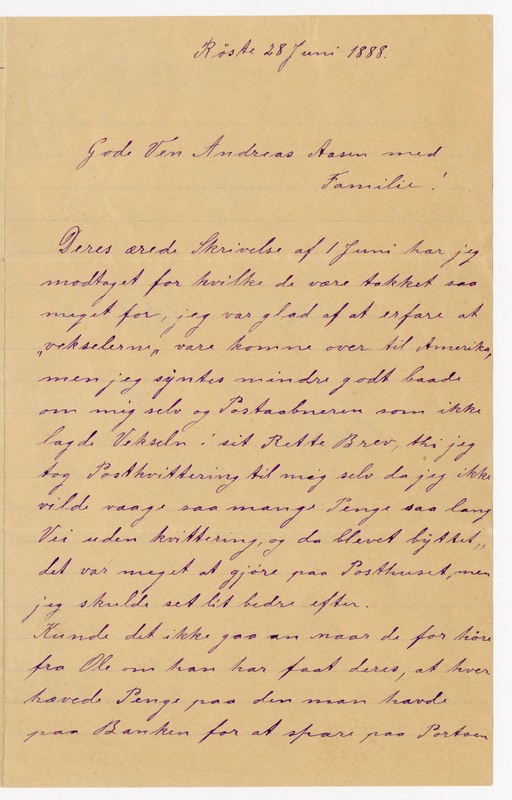 Röste 28 Juni 1888.
Gode Ven Andreas Aasen med
Familie!
Deres ærede Skrivelse af 1 Juni har jeg
modtaget for hvilke de være takket saa
meget for, jeg var glad af at erfare at
„vekselerne„ vare komne over til Amerika,
men jeg syntes mindre godt baade
om mig selv og Postaabneren som ikke
lagde Vekseln i sit Rette Brev, thi jeg
tog Postkvittering til mig selv da jeg ikke
vilde vaage saa mange Penge saa lang
Vei uden kvittering, og da blevet byttet„
det var meget at gjöre paa Posthuset, men
jeg skulde set lit bedre efter.
Kunde det ikke gaa an naar de for höre
fra Ole om han har faat deres, at hver
hævede Penge paa den man havde
paa Banken for at spare paa Portoen